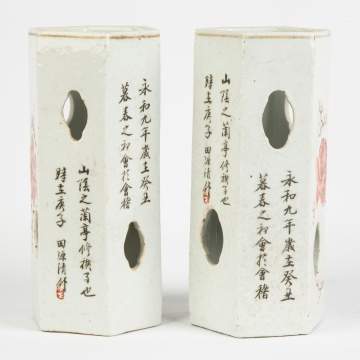 永和九年歲在癸丑
暮春之初會於會稽
山陰之蘭亭修禊事也
時在庚子 田源清作
永和九年歲在癸丑
暮春之初會於會稽
山陰之蘭亭修禊事也
時在庚子 田源清作